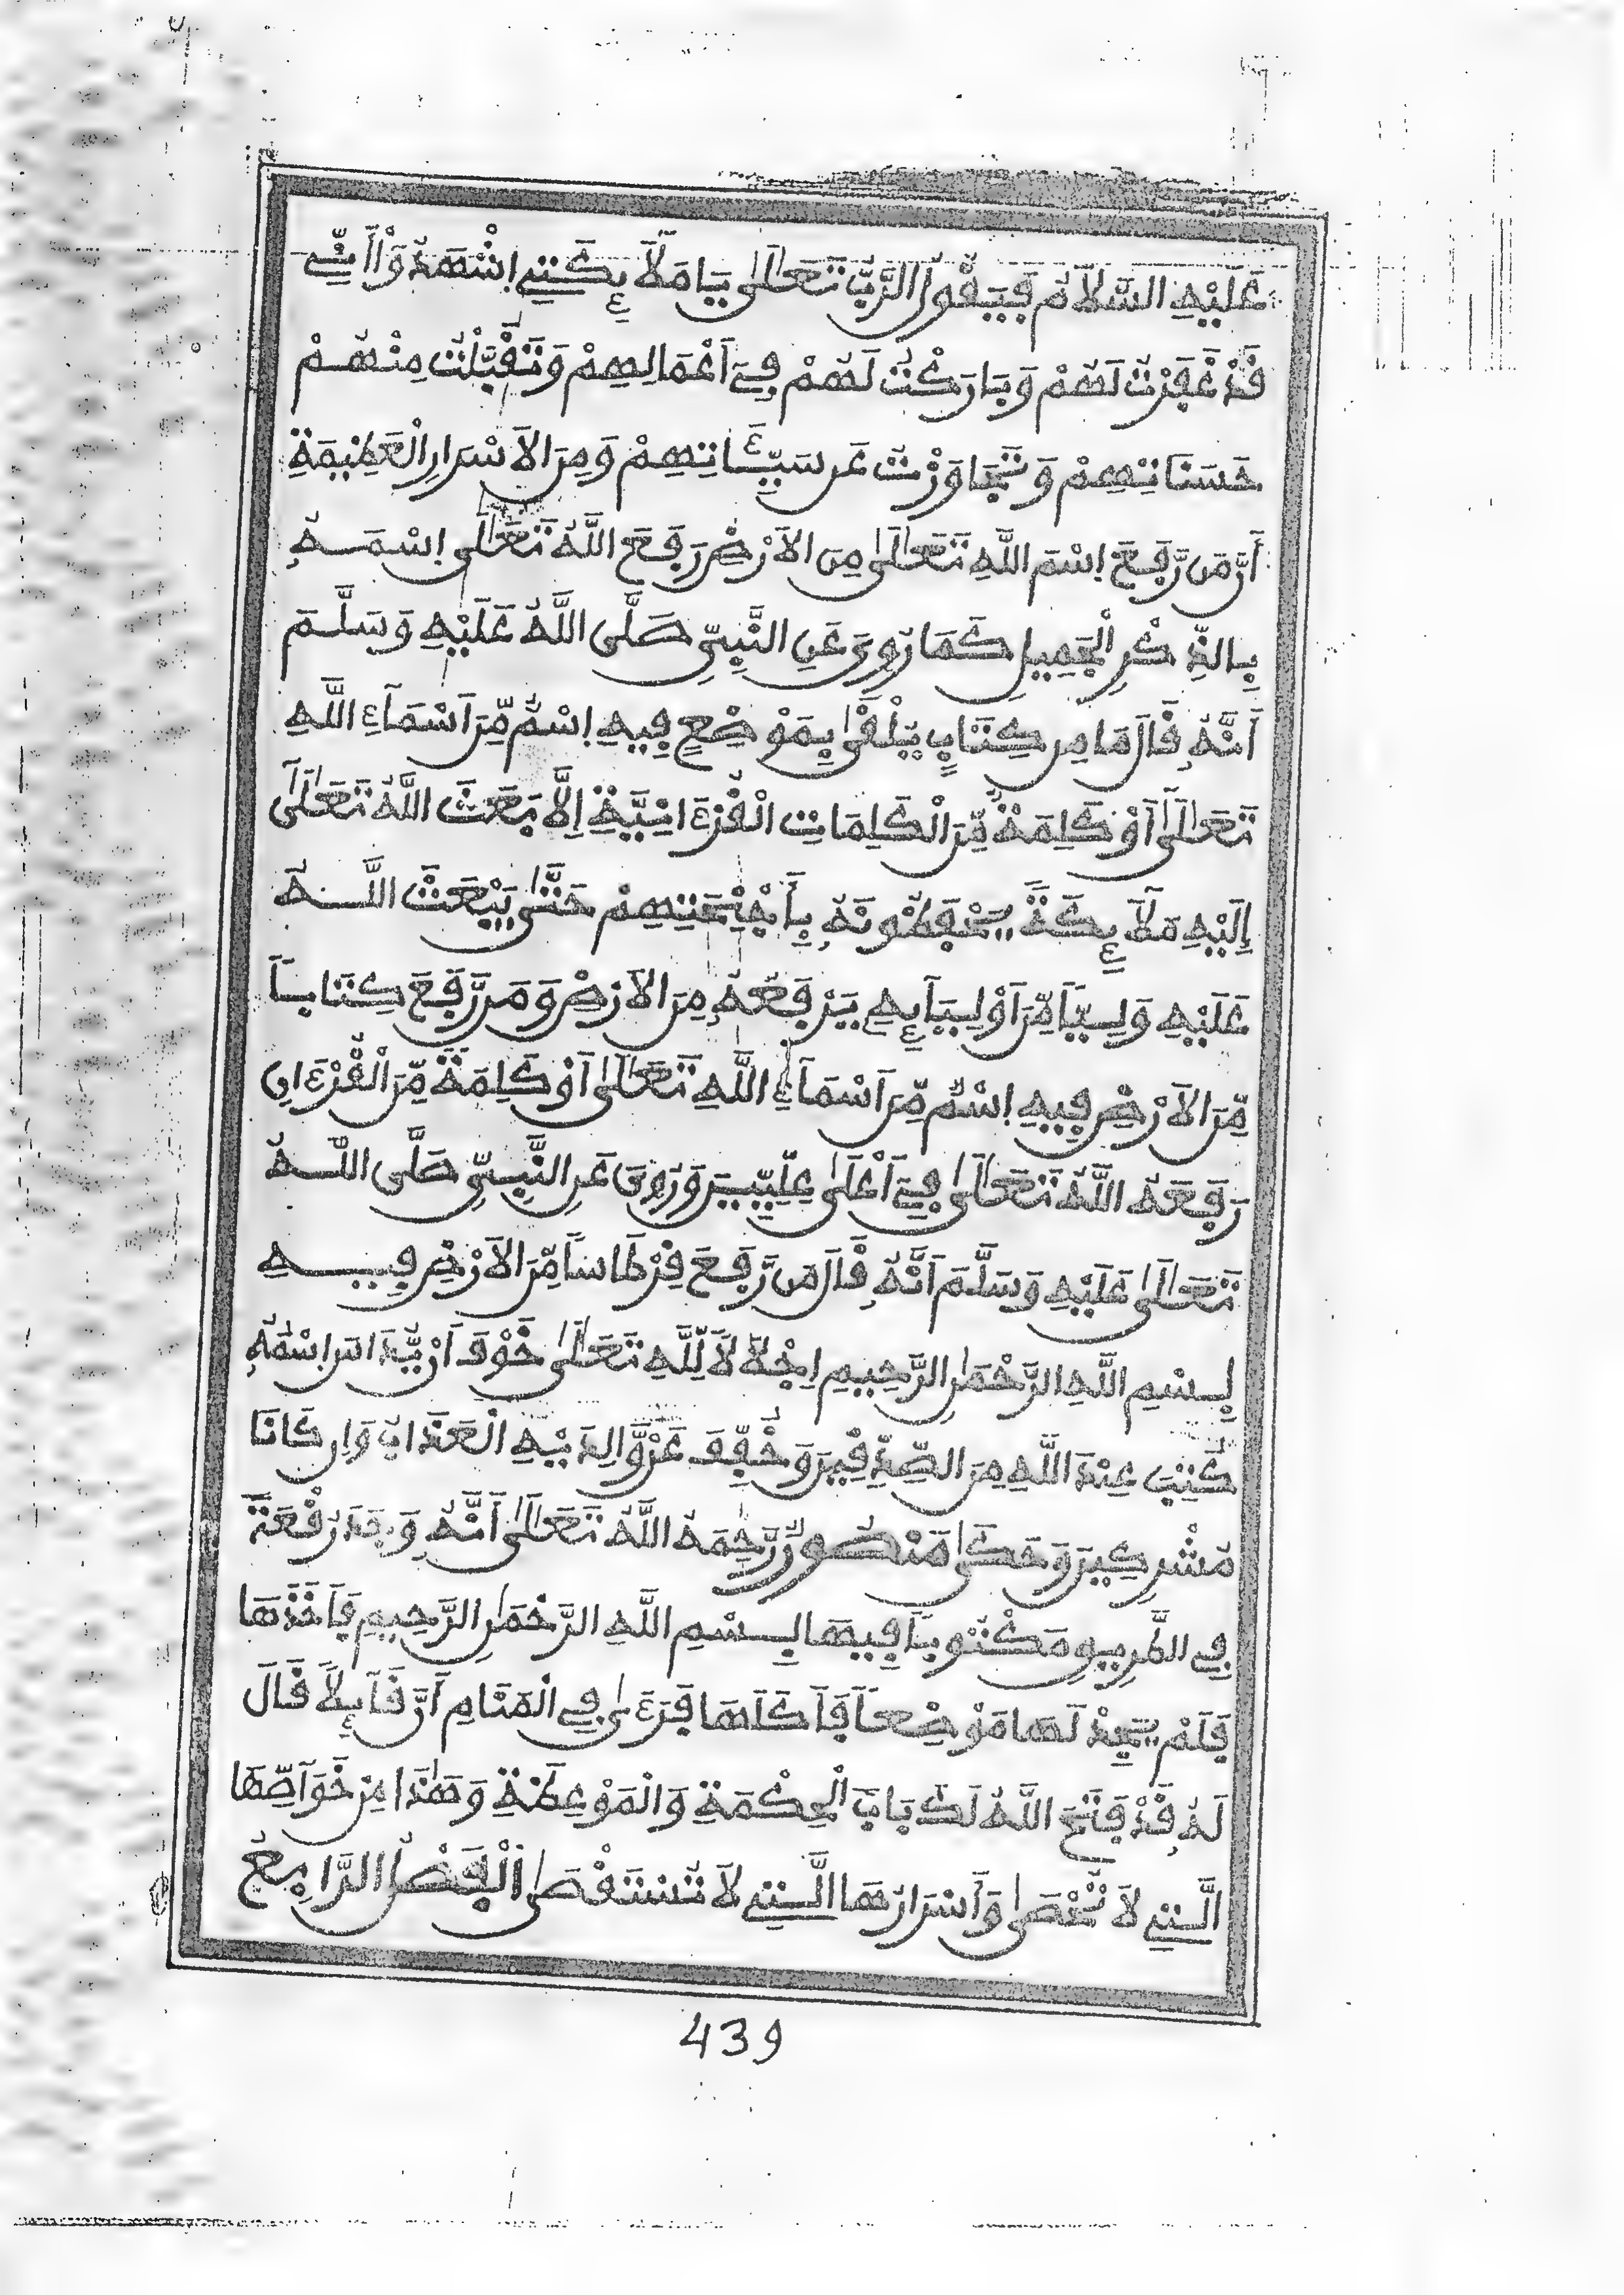 عَلَيْهِ السَّلَامُ فَيَقُولُ الرَّبُّ تَعَالَىٰ يَا مَلَآئِكَتِي اِشْهَدُوٓاْ أَنِّي
قَدْ غَفَرْتُ لَهُمْ وَبَارَكْتُ لَهُمْ فِي أَعْمَالِهِمْ وَتَقَبَّلْتُ مِنْهُمْ
حَسَنَاتِهِمْ وَتَجَاوَزْتُ عَن سَيِّئَاتِهِمْ وَمِنَ الاَسْرَارِ الْعَظِيمَةِ
أَنَّ مَن رَّفَعَ اِسْمَ اللَّهِ تَعَالَىٰ مِنَ الاَرْضِ رَفَعَ اللَّهُ تَعَالَى اِسْمَهُ
بِالذِّكْرِ الْجَمِيلِ كَمَا رُوِيَ عَنِ النَّبِيِّ صَلَّى اللَّهُ عَلَيْهِ وَسَلَّمَ
أَنَّهُ قَالَ مَا مِن كِتَابٍ يُلْقَىٰ بِمَوْضِعٍ فِيهِ اِسْمٌ مِّنَ اَسْمَاءِ اللَّهِ
تَعَالَىٰ أَوْ كَلِمَةٌ مِّنَ الْكَلِمَاتِ الْقُرْءَانِيَّةِ إِلَّا بَعَثَ اللَّهُ تَعَالَىٰ
إِلَيْهِ مَلَآئِكَةً يَحْفَظُونَهُ بِأَجْنِحَتِهِمْ حَتَّىٰ يَبْعَثَ اللَّهُ
عَلَيْهِ وَلِيّاً مِّنَ اَوْلِيَآئِهِ يَرْفَعُهُ مِنَ الاَرْضِ وَمَن رَّفَعَ كِتَاباً
مِّنَ الاَرْضِ فِيهِ اِسْمٌ مِّنَ اَسْمَاءِ اللَّهِ تَعَالَىٰ أَوْ كَلِمَةً مِّنَ الْقُرْءَانِ
رَفَعَهُ اللَّهُ تَعَالَىٰ فِي أَعْلَىٰ عِلِّيِّينَ وَرُوِيَ عَنِ النَّبِيِّ صَلَّى اللَّهُ
تَعَالَىٰ عَلَيْهِ وَسَلَّمَ أَنَّهُ قَالَ مَن رَّفَعَ قِرْطَاساً مِّنَ الاَرْضِ فِيهِ
بِسْمِ اللَّهِ الرَّحْمَٰنِ الرَّحِيمِ اِجْلَالاً لِّلَّهِ تَعَالَىٰ خَوْفَ أَن يُّدَاسَ اِسْمُهُ
كُتِبَ عِندَ اللَّهِ مِنَ الصِّدِّيقِينَ وَخُفِّفَ عَن وَّالِدَيْهِ الْعَذَابُ وَإِن كَانَا
مُشْرِكِينَ وَحَكَىٰ مَنْصُورٌ رَّحِمَهُ اللَّهُ تَعَالَىٰ أَنَّهُ وَجَدَ رُقْعَةً
فِي الطَّرِيقِ مَكْتُوباً فِيهَا بِسْمِ اللَّهِ الرَّحْمَٰنِ الرَّحِيمِ فَأَخَذَهَا
فَلَمْ يَجِدْ لَهَا مَوْضِعاً فَأَكَلَهَا فَرَءَىٰ فِي الْمَنَامِ أَنَّ قَآئِلاً قَالَ
لَهُ قَدْ فَتَحَ اللَّهُ لَكَ بَابَ الْحِكْمَةِ وَالْمَوْعِظَةِ وَهَٰذَا مِنْ خَوَآصِّهَا
الَّتِي لَا تُحْصَىٰ وَأَسْرَارِهَا الَّتِي لَا تُسْتَقْصَىٰ اَلْفَصْلُ الرَّابِعُ
439